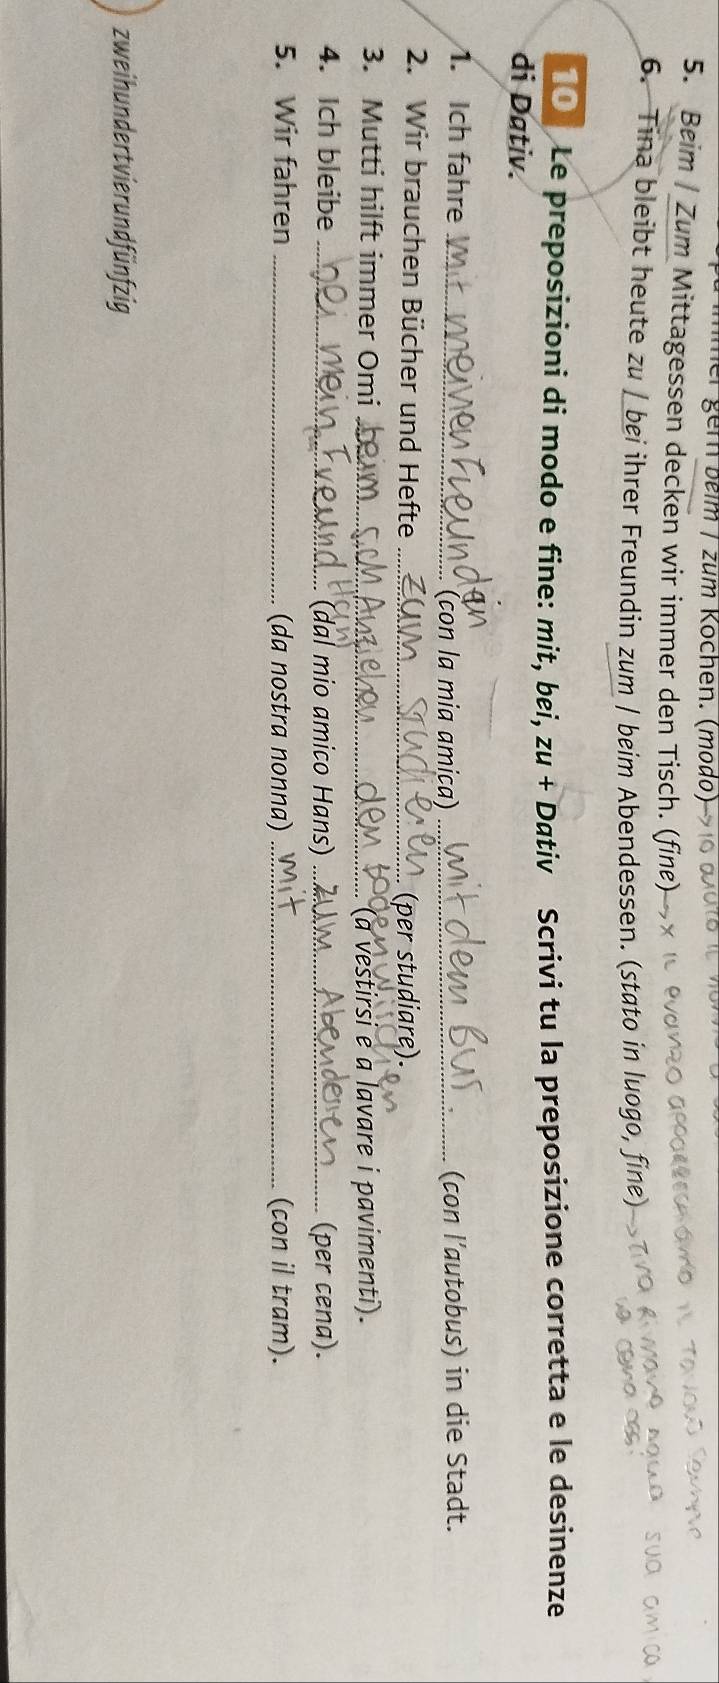 gern beim / zum Kochen. (modo) →
5. Beim / Zum Mittagessen decken wir immer den Tisch. (fine) → x
6. Tina bleibt heute zu / bei ihrer Freundin zum / beim Abendessen. (stato in luogo, fine) → sua amica
10 Le preposizioni di modo e fine: mit, bei, zu + Dativ Scrivi tu la preposizione corretta e le desinenze
di Dativ.
1. Ich fahre mit meinen Freundin (con la mia amica) mit dem Bus. (con l'autobus) in die Stadt.
2. Wir brauchen Bücher und Hefte zum studieren (per studiare).
3. Mutti hilft immer Omi beim sich Anziehen den bodenwischen (a vestirsi e a lavare i pavimenti).
4. Ich bleibe bei mein Freund Hans (dal mio amico Hans) zum Abendessen (per cena).
5. Wir fahren (da nostra nonna) mit (con il tram).
zweihundertvierundfünfzig